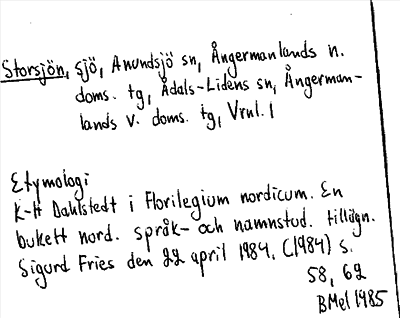 Storsjön, sjö, Anundsjö sn, Ångermanlands n.
doms. tg, Ådals-Lidens sn, Ångerman-
lands v. doms. tg, Vrnl. l
Etymologi
K-H Dahlstedt i Florilegium nordicum. En
bukett nord. språk- och namnstud. tillägn.
Sigurd Fries den 22 april 1984. (1984) s.
58, 62
BMel 1985